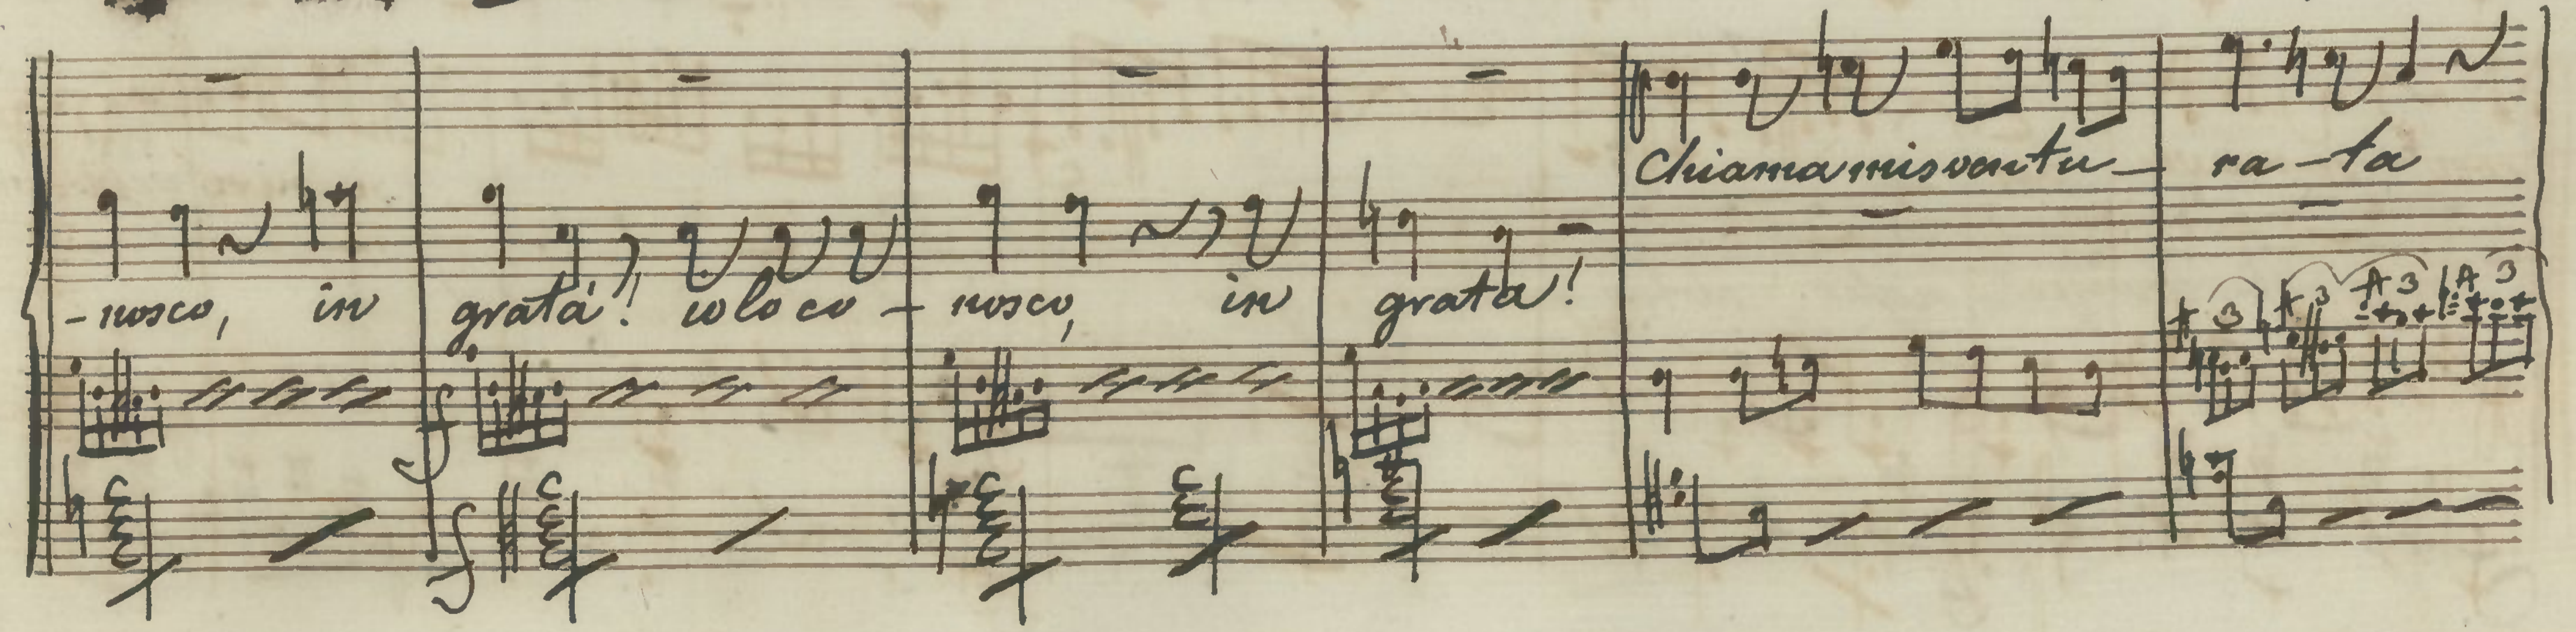 Chiama misventu- ra-ta
-nosco, in grata! io lo co- nosco, in grata!
f
3 3 3 3
f